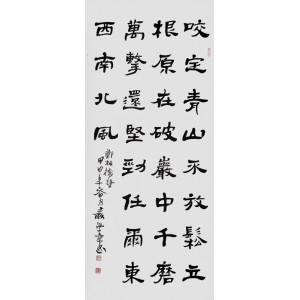 咬定青山不放鬆立
根原在破巖中千磨
萬擊還堅勁任爾東
西南北風
鄭板橋詩
甲申年